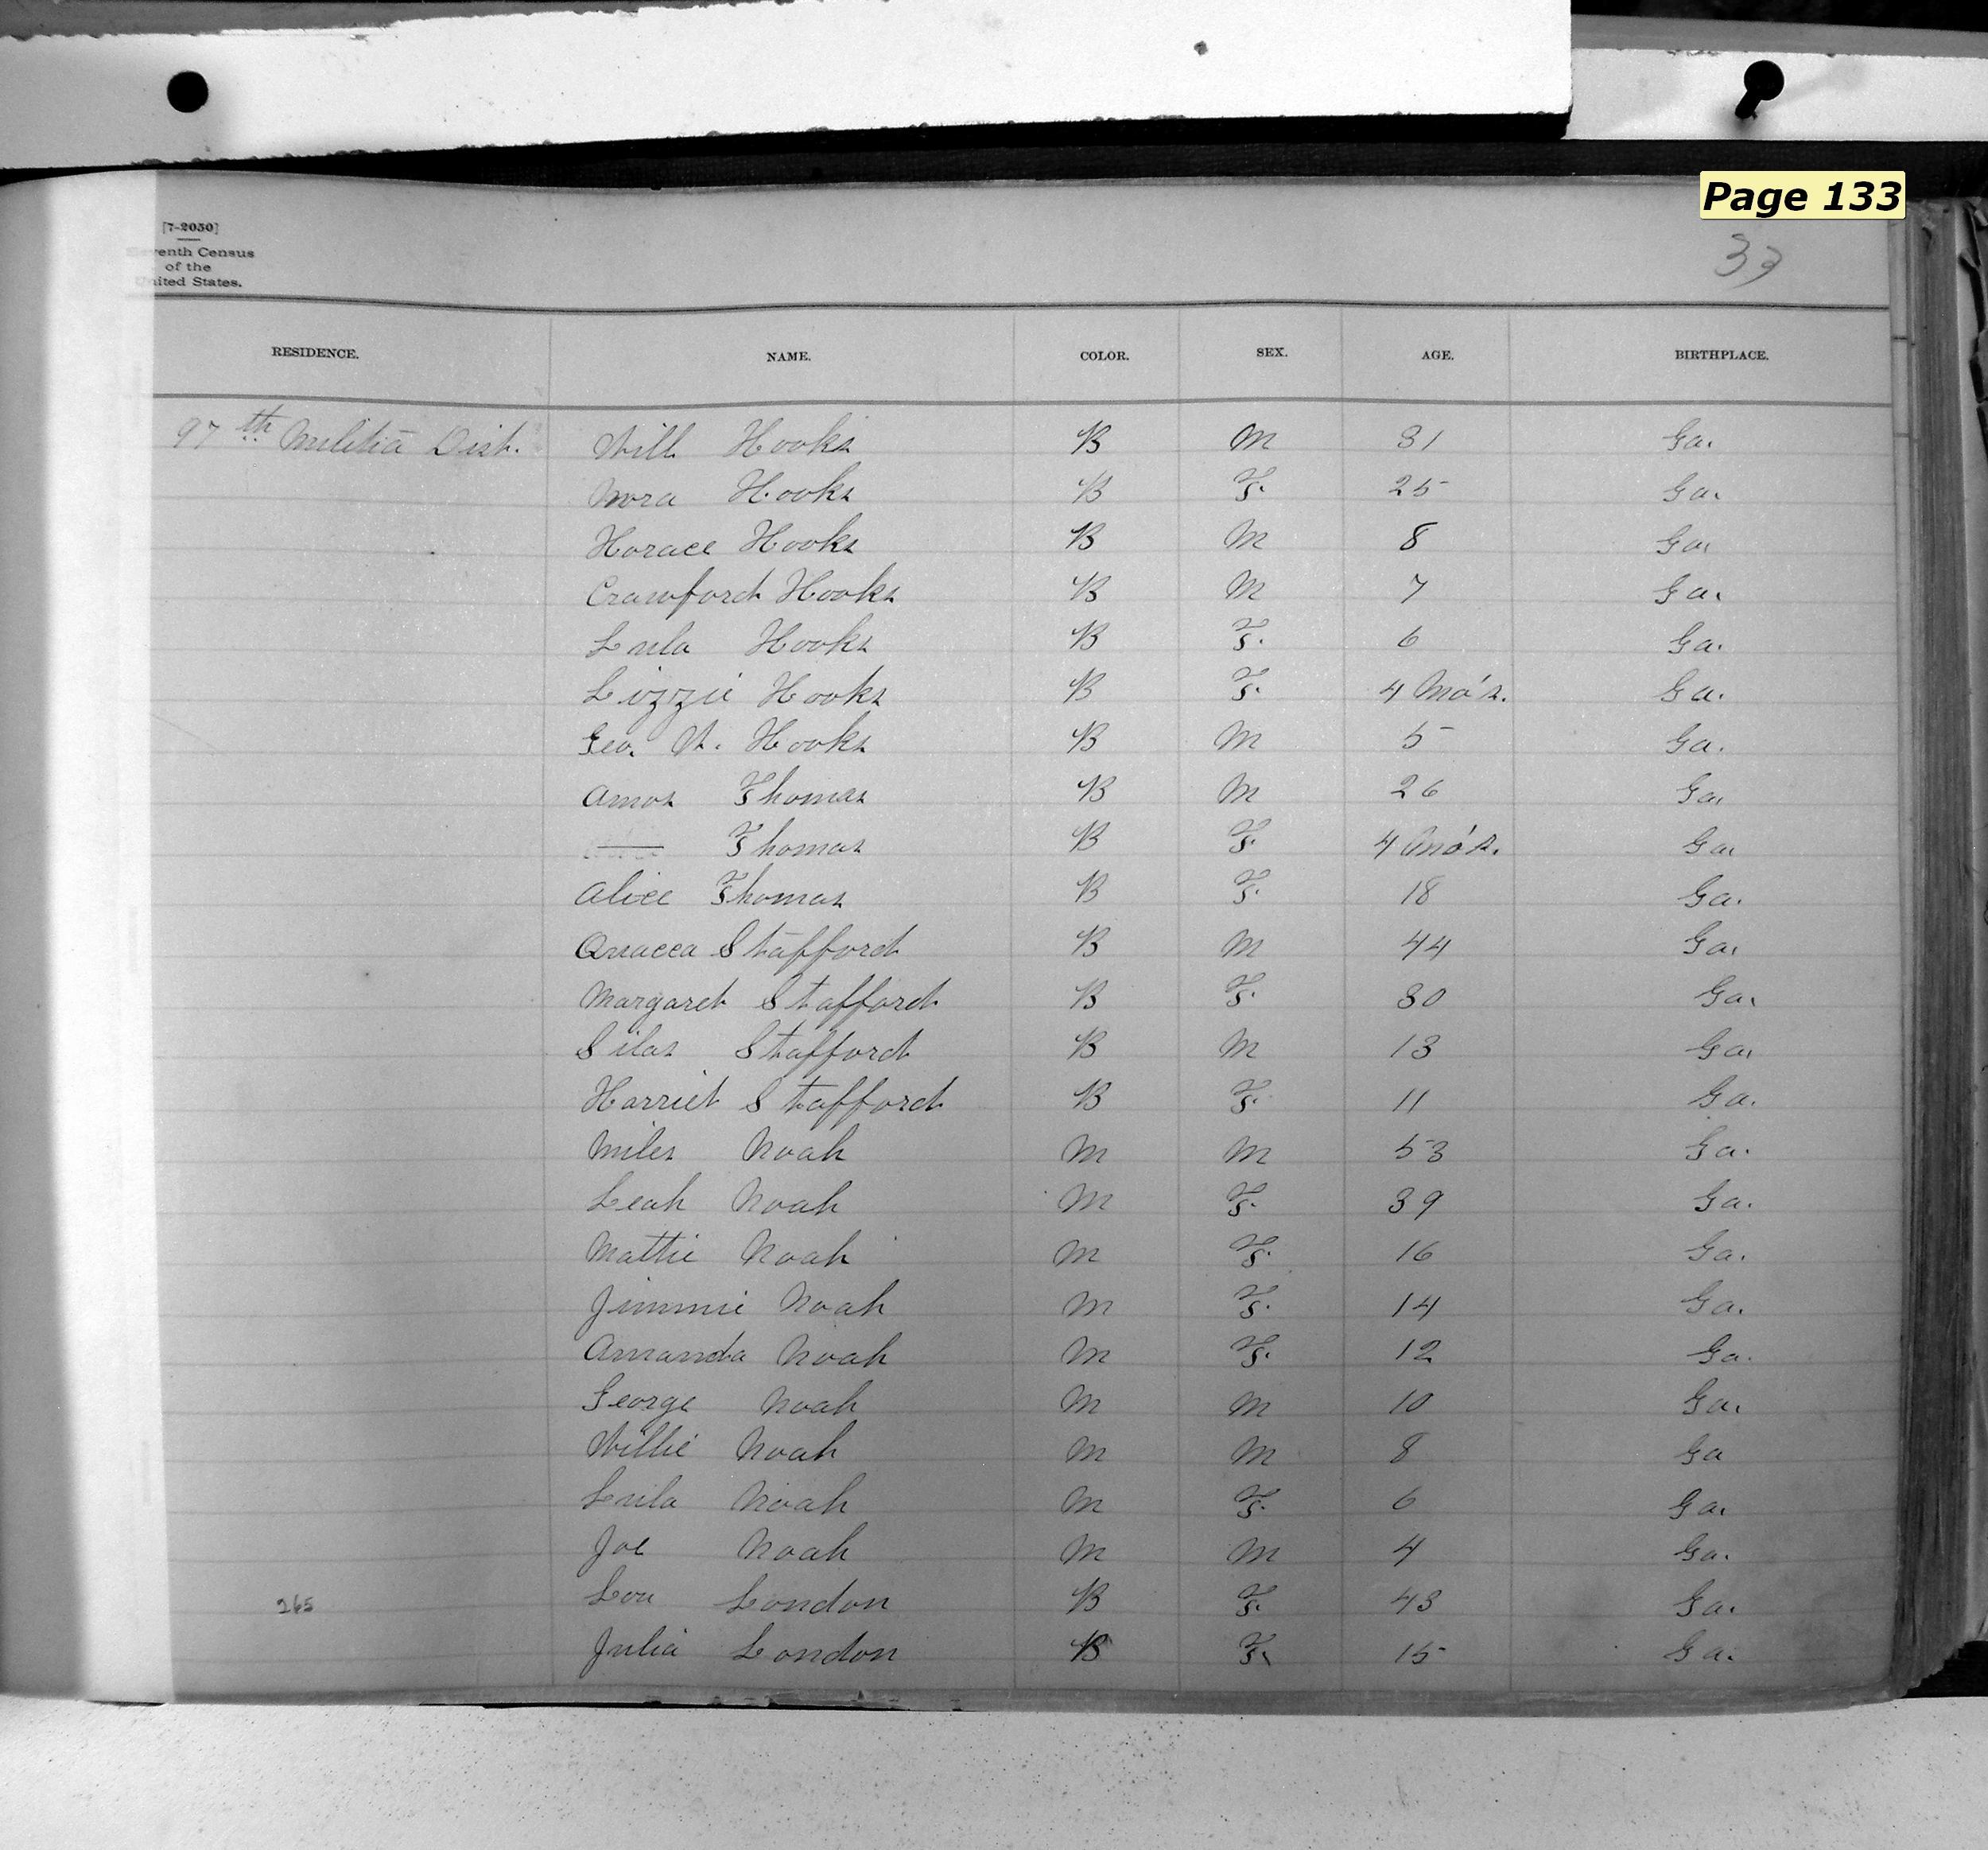 Page 133
33
[7-2050]
Eleventh Census
of the
United States.
RESIDENCE. NAME. COLOR. SEX. AGE. BIRTHPLACE.
97th Militia Dist. Will Hooks B M 31 Ga.
Nora Hooks B F. 25 Ga.
Horace Hooks B M 8 Ga.
Crawford Hooks B M 7 Ga.
Lula Hooks B F. 6 Ga.
Lizzie Hooks B F. 4 Mo's. Ga.
Geo. W. Hooks B M 5 Ga.
Amos Thomas B M 26 Ga.
—— Thomas B F. 4 Mo's. Ga.
Alice Thomas B F. 18 Ga.
Quacca Stafford B M 44 Ga.
Margaret Stafford B F. 30 Ga.
Silas Stafford B M 13 Ga.
Harriet Stafford B F. 11 Ga.
Miles Noah M M 53 Ga.
Leah Noah M F. 39 Ga.
Mattie Noah M F. 16 Ga.
Jimmie Noah M F. 14 Ga.
Amanda Noah M F. 12 Ga.
George Noah M M 10 Ga.
Willie Noah M M 8 Ga
Lula Noah M F. 6 Ga.
Joe Noah M M 4 Ga.
265 Lou London B F. 43 Ga.
Julia London B F. 15 Ga.